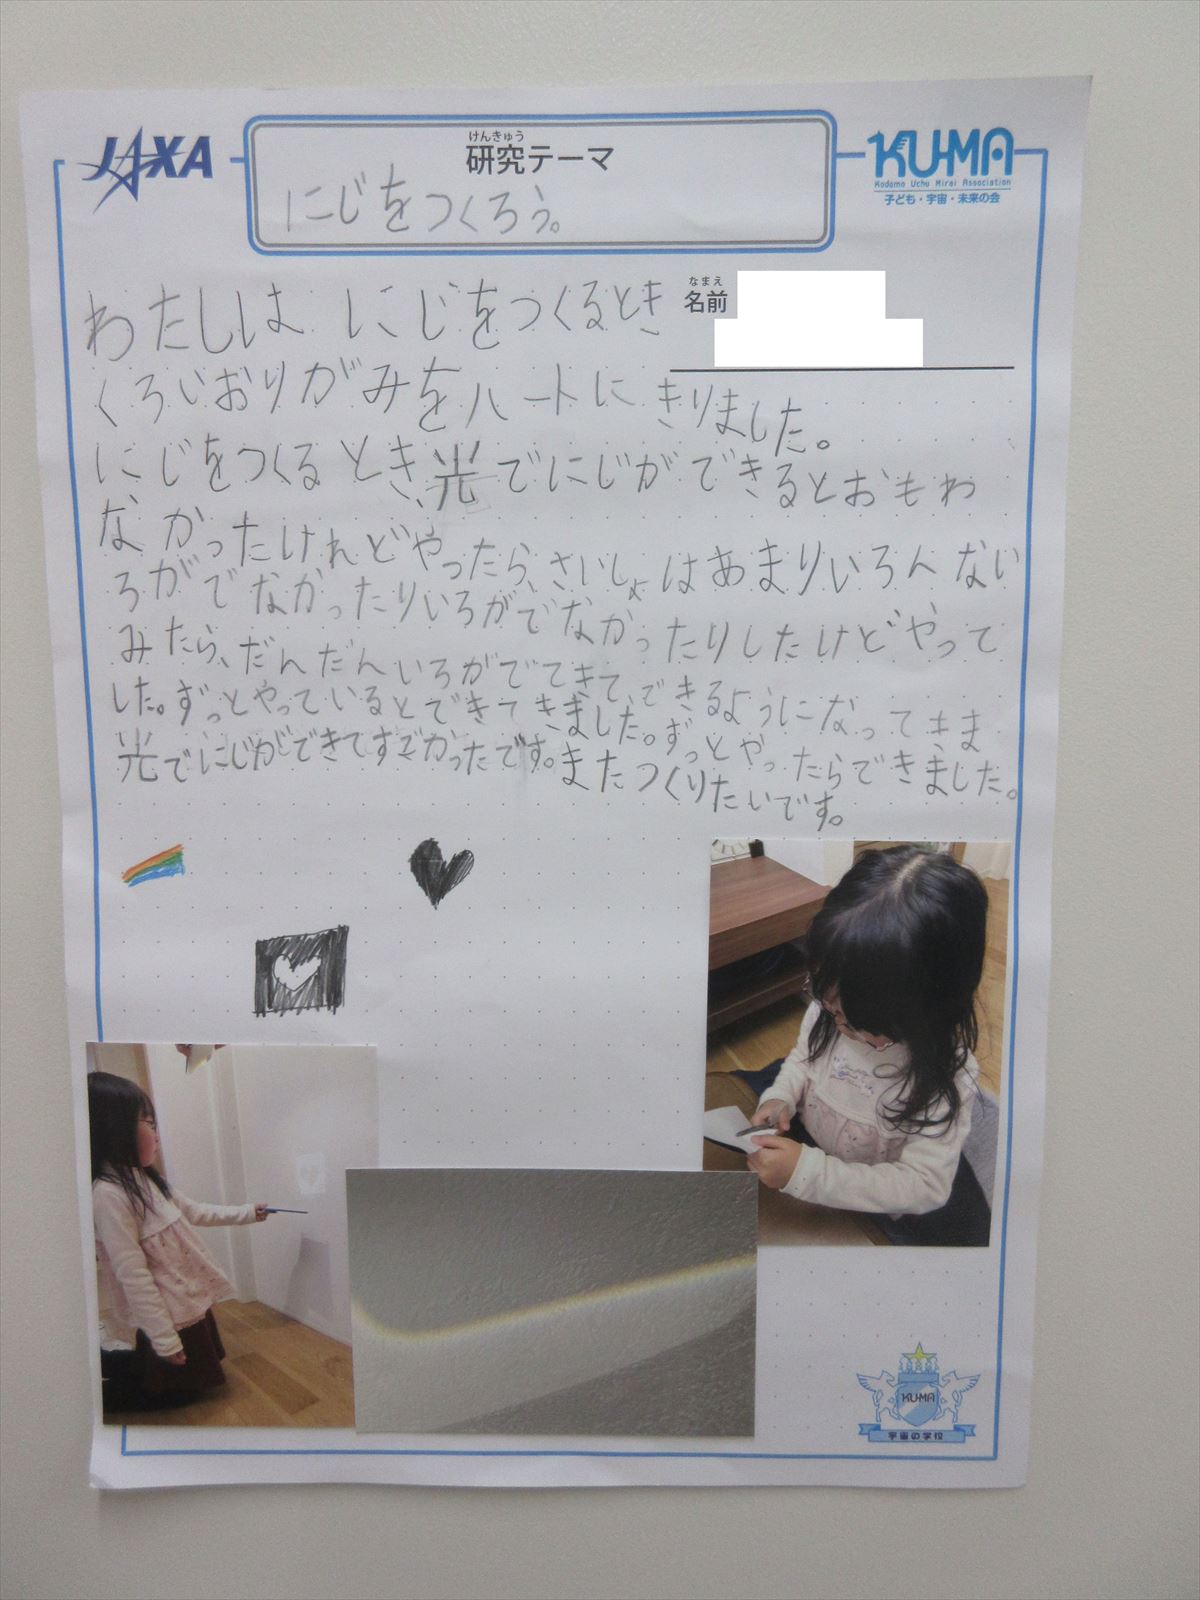 JAXA
けんきゅう
研究テーマ
KU-MA
Kodomo Uchu Mirai Association
子ども・宇宙・未来の会
にじをつくろう。
なまえ
名前
わたしは にじをつくるとき
くろいおりがみをハートにきりました。
にじをつくるとき、光でにじができるとおもわ
なかったけれどやったら、さいしょはあまりいろんない
ろがでなかったりいろがでなかったりしたけどやって
みたら、だんだんいろがでてきて、できるようになってきま
した。ずっとやっているとできてきました。ずっとやったらできました。
光でにじができてすごかったです。またつくりたいです。
KU-MA
宇宙の学校